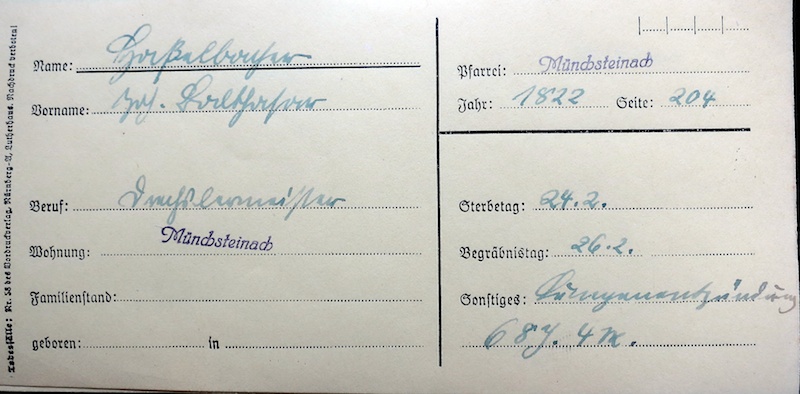 Todesfälle: Nr. 58 des Vordruckverlag, Nürnberg-A, Lutherhaus. Nachdruck verboten!
Name: Haßelbacher
Vorname: Joh. Balthasar
Beruf: Drechslermeister
Wohnung: Münchsteinach
Familienstand:
geboren: in
Pfarrei: Münchsteinach
Jahr: 1822 Seite: 204
Sterbetag: 24.2.
Begräbnistag: 26.2.
Sonstiges: Lungenentzündung
68 J. 4 M.